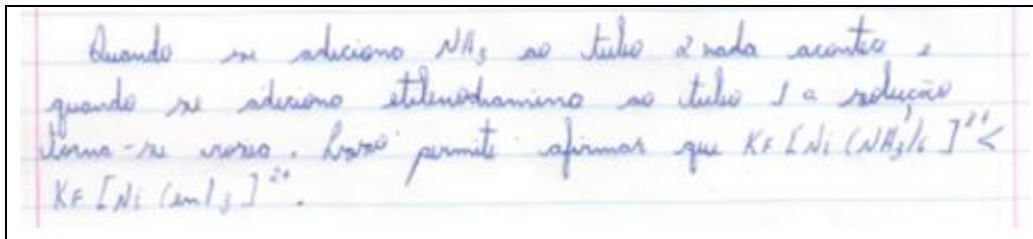 Quando se adiciona NH3 ao tubo 2 nada acontece e
quando se adiciona etilenodiamina ao tubo 1 a solução
torna-se roxa. Isso permite afirmar que KF [Ni(NH3)6]2+ <
KF [Ni(en)3]2+.